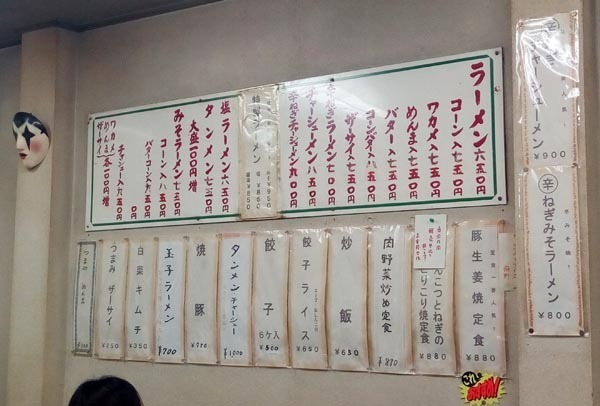 ラーメン 六五〇円
コーン入 七五〇円
ワカメ入 七五〇円
めんま入 七五〇円
バター入 七五〇円
コーンバター入 八五〇円
ザーサイ入 七五〇円
辛ねぎラーメン 七〇〇円
チャーシューメン 八五〇円
辛ねぎチャーシューメン 九〇〇円
ラーメン
塩ラーメン 六五〇円
タンメン 七五〇円
大盛 一〇〇円増
みそラーメン 七五〇円
コーン入 八五〇円
バターコーン入 九五〇円
チャーシュー入
ワカメ
めんま
ザーサイ
各一〇〇円増
辛ねぎ
チャーシューメン
¥900
辛ねぎみそラーメン
¥800
豚生姜焼定食
¥880
こりこり焼定食
¥880
肉野菜炒め定食
¥870
炒飯
¥650
餃子ライス
¥650
餃子
6ケ入
¥500
タンメンチャーシュー
¥1000
焼豚
¥750
玉子ラーメン
¥700
白菜キムチ
¥350
つまみ ザーサイ
¥250
つまみ めんま